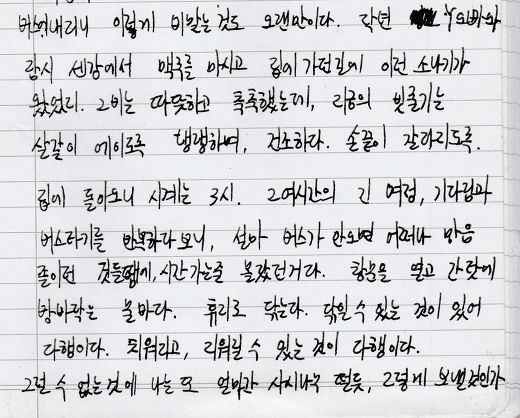 버석내리니 이렇게 비맞는것도 오랜만이다. 작년 오빠와
람시 센강에서 맥주를 마시고 집에 가던길에 이런 소나기가
왔었다. 그비는 따뜻하고 축축했는데, 리옹의 빗줄기는
살갗이 에이도록 냉랭하며, 건조하다. 손끝이 갈라지도록.
집에 돌아오니 시계는 3시. 2여시간의 긴 여정, 기다림과
버스타기를 반복하다보니, 설마 버스가 안오면 어쩌나 맘을
졸이던 것들땜에, 시간가는줄 몰랐던거다. 창문을 열고 간탓에
방바닥은 물바다. 휴지로 닦는다. 닦일 수 있는 것이 있어
다행이다. 치워지고, 지워질 수 있는 것이 다행이다.
그럴 수 없는것에 나는 또 얼마간 시시나무 떨듯, 그렇게 보낼것인가